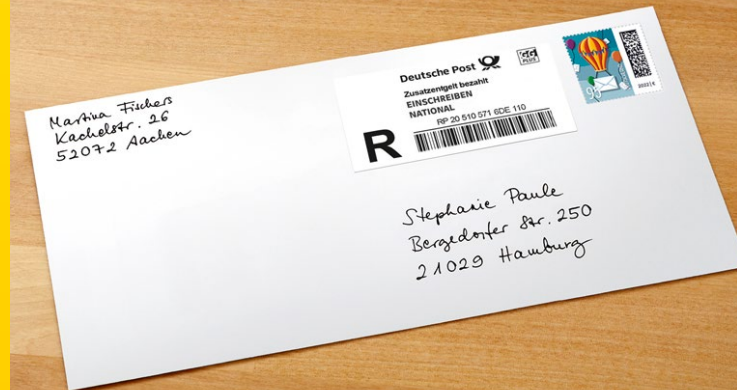 Martina Fischers
Kachelstr. 26
52072 Aachen
Deutsche Post
Zusatzentgelt bezahlt
EINSCHREIBEN
NATIONAL
RP 20 510 571 6DE 110
R
95
Stephanie Paule
Bergedorfer Str. 250
21029 Hamburg